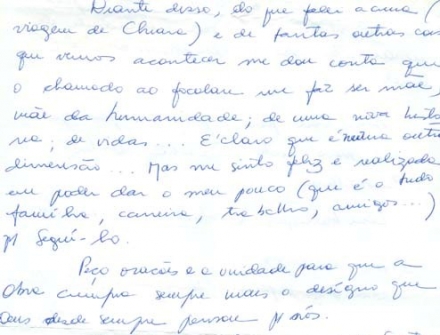 Diante disso, do que falei acima (
viagem de Chiara) e de tantas outras cois
que vemos acontecer me dou conta que
o chamado ao focolare me faz ser mãe,
mãe da humanidade; de uma nova histó
ria; de vidas... É claro que é numa outra
dimensão... Mas me sinto feliz e realizada
em poder dar o meu pouco (que é o tudo
família, carreira, trabalho, amigos...)
p/ Segui-lo.
Peço orações e a unidade para que a
Obra cumpra sempre mais o desígnio que
Deus desde sempre pensou p/ nós.